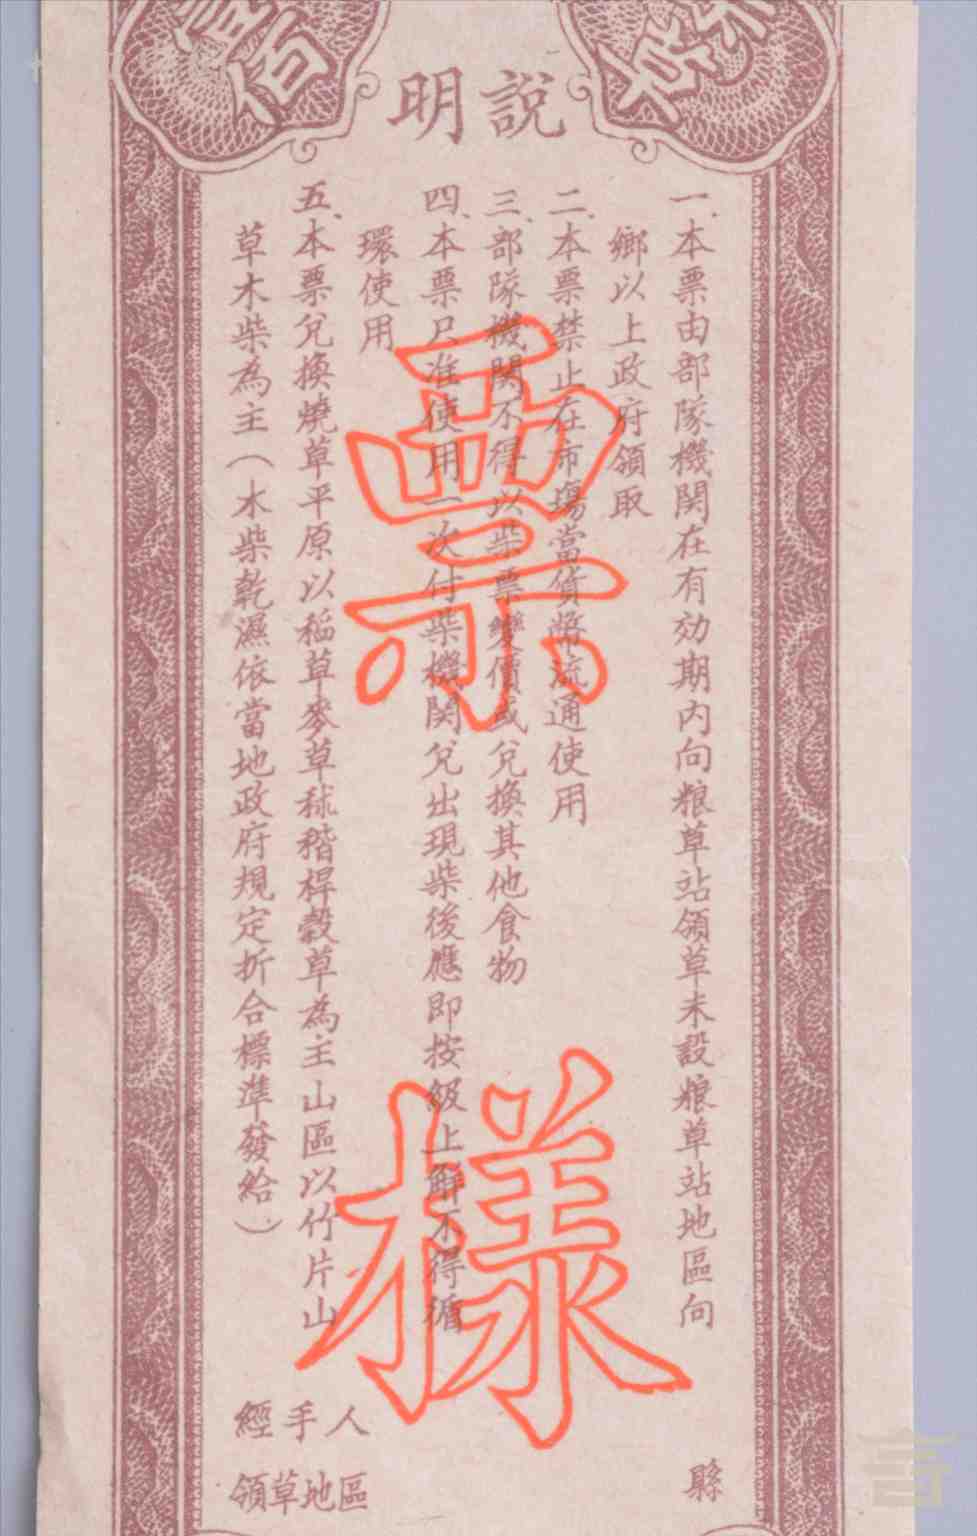 壹佰
說明
一、本票由部隊機関在有効期内向粮草站領草未設粮草站地區向
鄉以上政府領取
二、本票禁止在市場當貨幣流通使用
三、部隊機関不得以柴票變價或兌換其他食物
四、本票只准使用一次付柴機関兌出現柴後應即按級上解不得循
環使用
五、本票兌換燒草平原以稻草麥草秫稭桿穀草為主山區以竹片山
草木柴為主（木柴乾濕依當地政府規定折合標準發給）
票樣
經手人
領草地區
縣